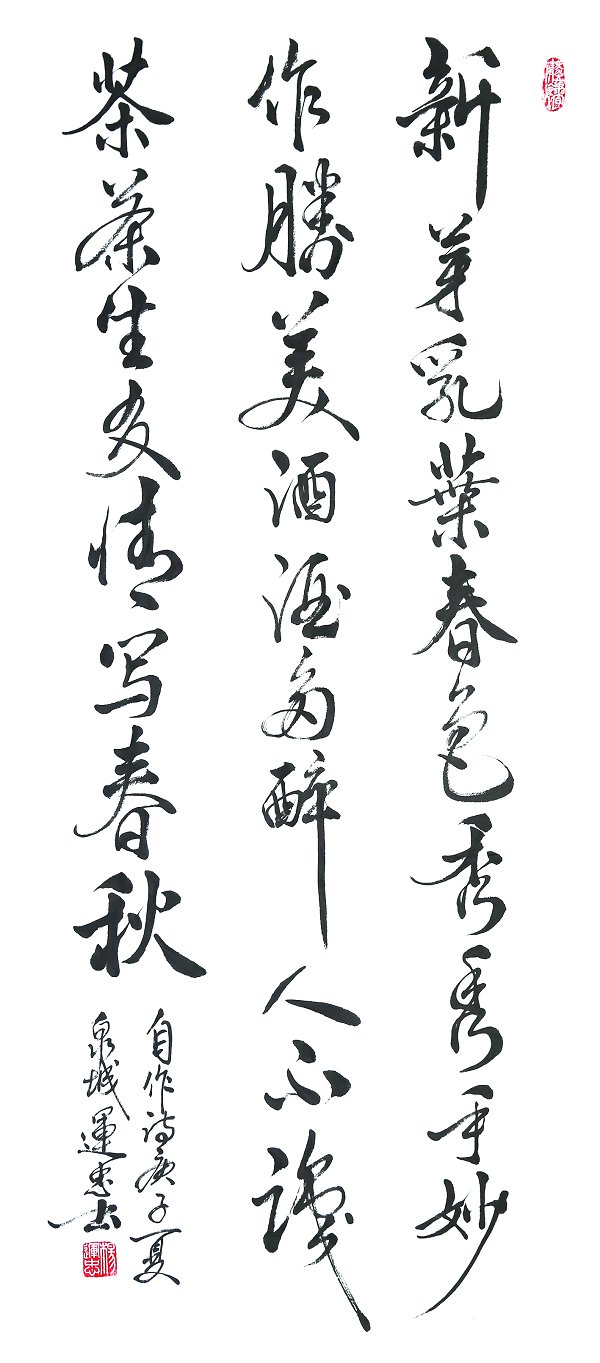 新芽乳葉春色秀秀手妙
作勝美酒酒多醉人不識
茶茶生友情々写春秋
自作诗庚子夏
泉城運忠书